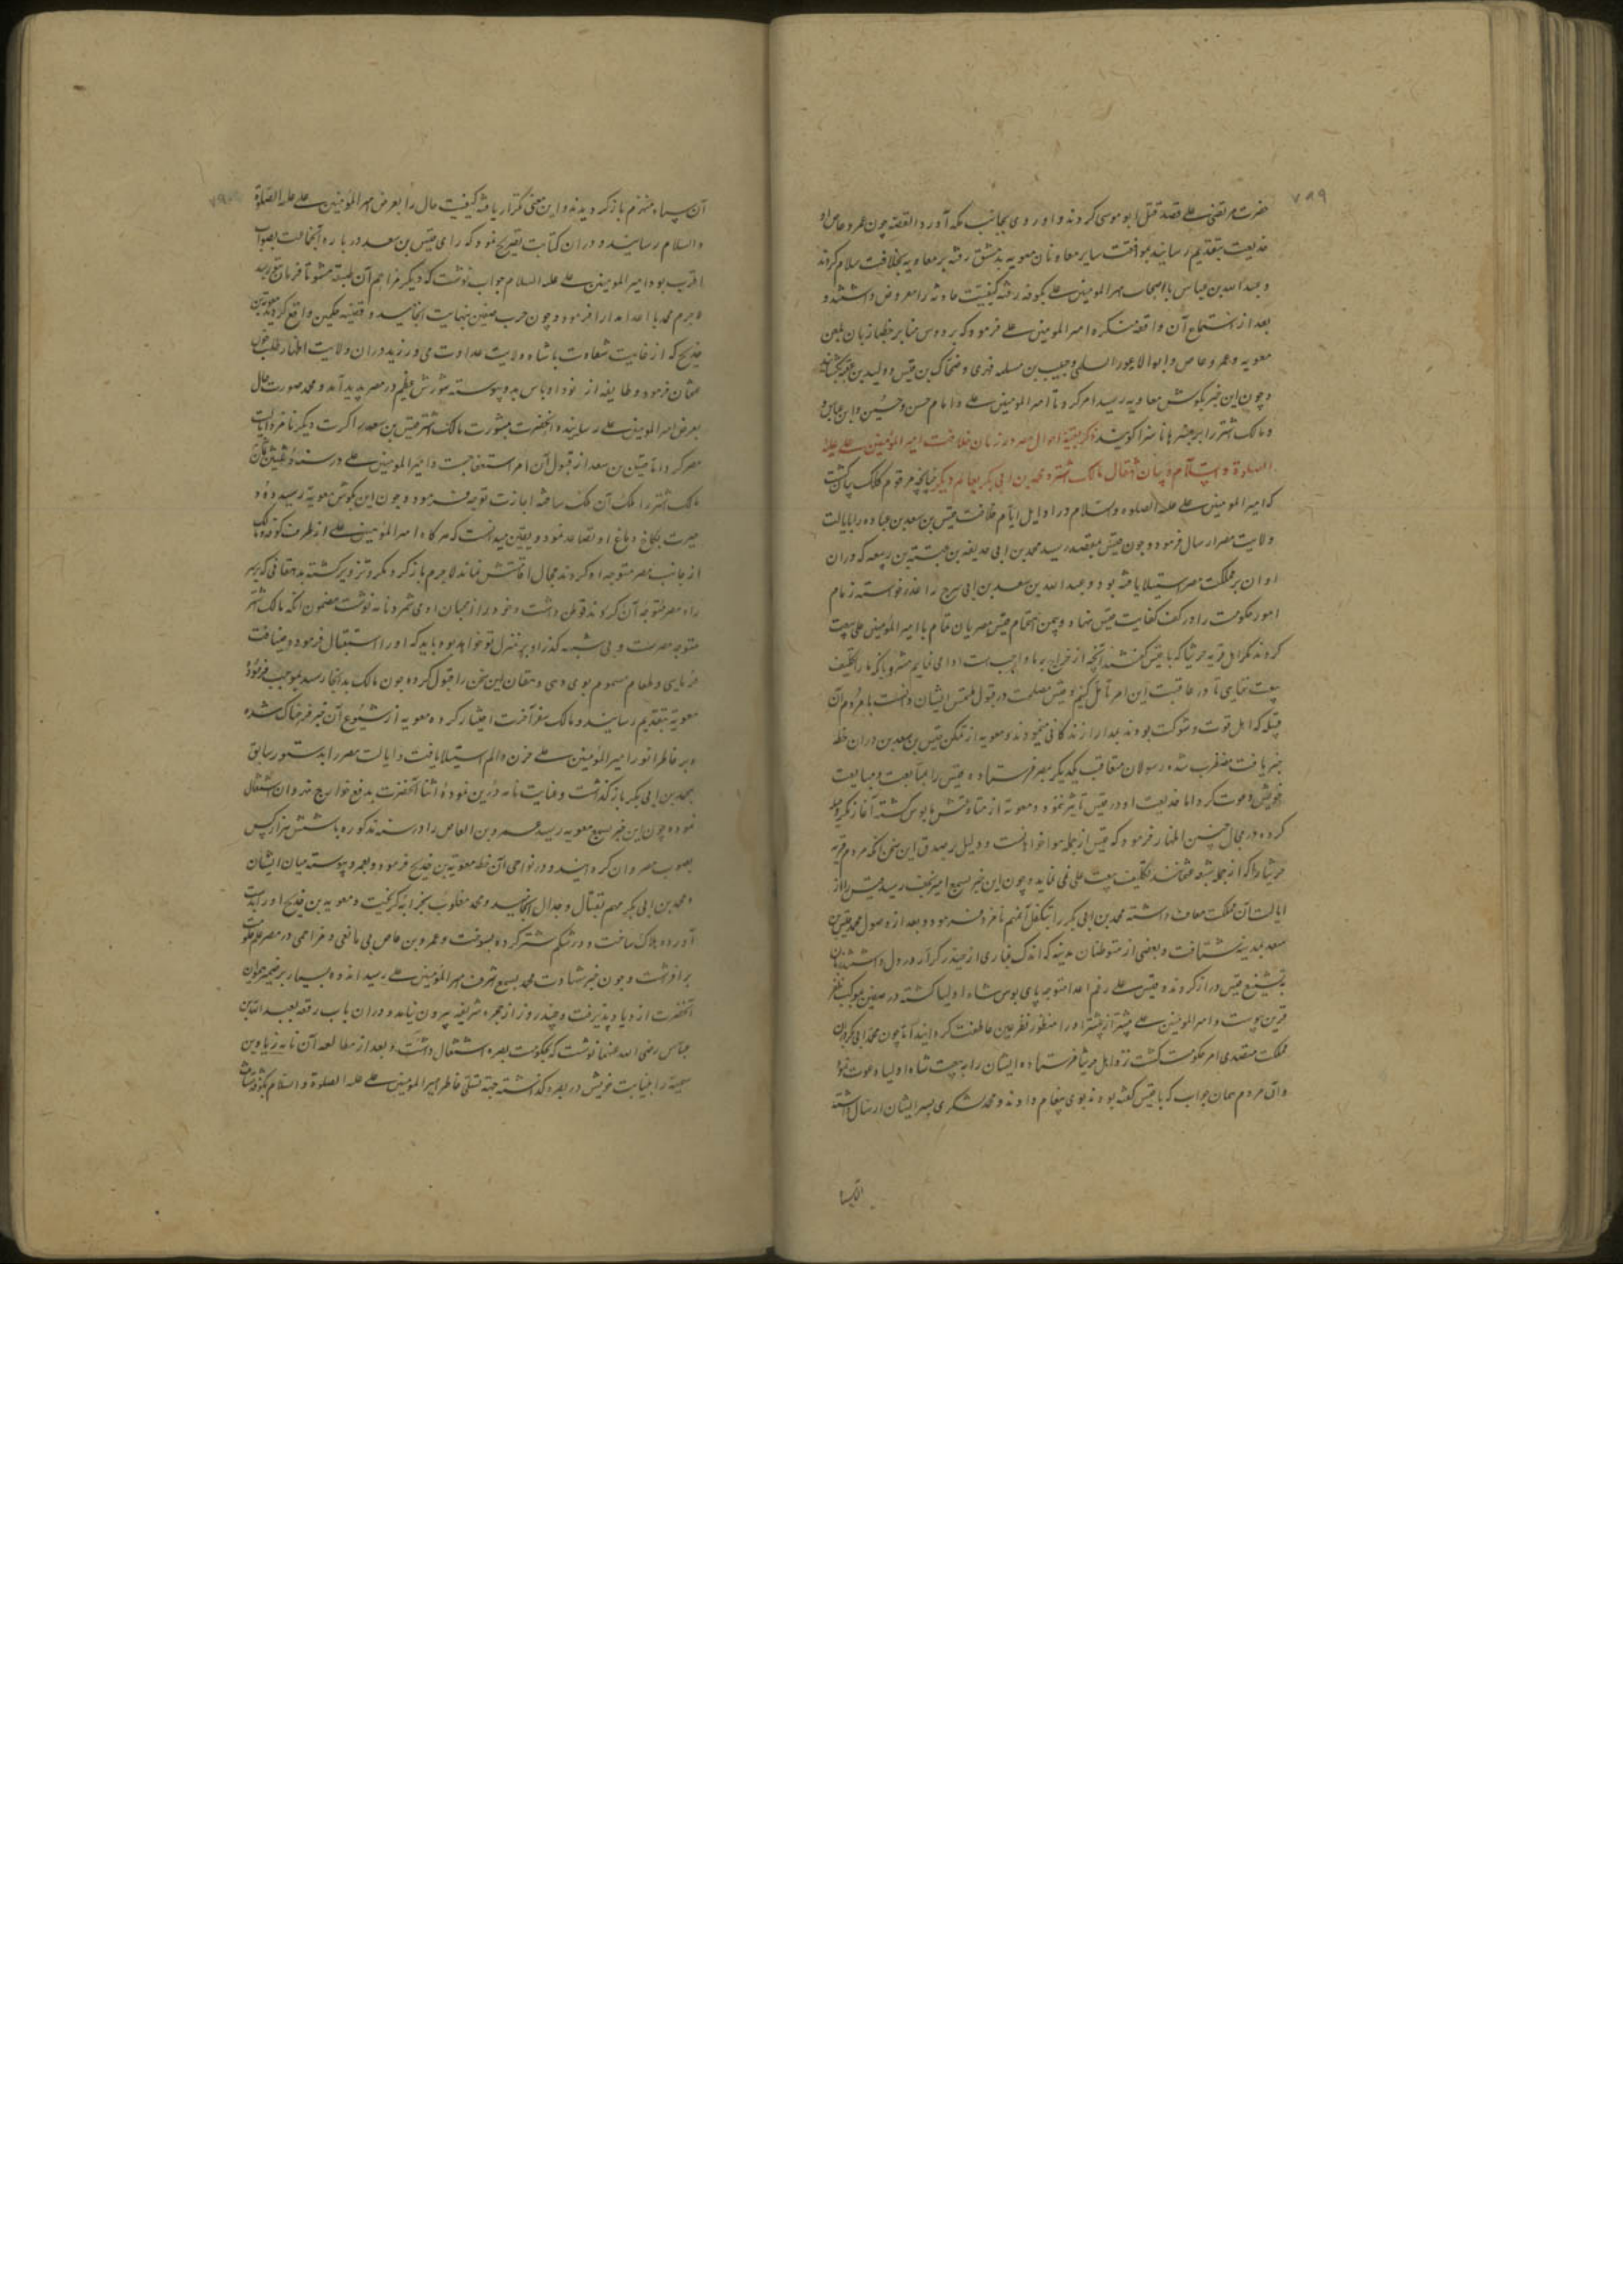 ۷۸۹
حضرت مرتضی علی قصد قتل ابو موسی کردند و او روی بجانب مکه آورد القصه چون عمرو عاص او
خدیعت بتقدیم رسانید بموافقت سایر معاونان معویه بدمشق رفته بر معاویه بخلافت سلام کردند
و عبد الله بن عباس با اصحاب امیر المومنین علی بکوفه رفته کیفیت حادثه را معروض داشتند و
بعد از استماع آن واقعه منکره امیر المومنین علی فرمود که بر دوس منابر خطبا زبان بلعن
معویه و عمرو عاص و ابو الاعور السلمی و حبیب بن مسلمه فهری و ضحاک بن قیس و ولید بن عقبه
و چون این خبر بکوش معاویه رسید امر کرد تا امیر المومنین علی و امام حسن و حسین و ابن عباس و
و مالک اشتر را بر منبرها ناسزا کویند ذکر بقیه احوال مصر در زمان خلافت امیر المومنین علی علیه
الصلوة و السلام و بیان انتقال مالک اشتر و محمد بن ابی بکر بعالم دیکر چنانچه مرقوم کلک بیان کشت
که امیر المومنین علی علیه الصلوه و السلام در اوایل ایام خلافت قیس بن سعد بن عباده را بایالت
ولایت مصر ارسال فرمود و چون قیس بمقصد رسید محمد بن ابی حذیفه بن عتبه بن ربیعه که در ان
اوان بر مملکت مصر استیلا یافته بود و عبد الله بن سعد بن ابی سرح را عذر خواسته زمام
امور حکومت را در کف کفایت قیس نهاد و بیمن اهتمام قیس مصریان تمام با امیر المومنین علی بیعت
کردند مکر اهل قریه خربتا که با قیس کفتند آنچه از خراج بر ما واجبست ادا می نمایم مشروط بانکه ما را تکلیف
بیعت ننمایی تا در عاقبت این امر تامل کنیم و قیس مصلحت در قبول ملتمس ایشان دانست با مردم آن
قبیله که اهل قوت و شوکت بودند بمدارا زندکانی مینمودند و معویه از تمکن قیس بن سعد بن در ان خطه
خبر یافت مضطرب شده رسولان متعاقب یکدیکر بمصر فرستاده قیس را بمتابعت و مبایعت
خویش دعوت کرد اما خدیعت او در قیس تاثیر ننمود و معویه از متابعتش مایوس کشته آغاز مکر و حیله
کرده در مجالس اظهار فرمود که قیس از جمله هواخواه ماست و دلیل بر صدق این سخن آنکه مردم قریه
خربتا را که از جمله شیعه عثمانند تکلیف بیعت علی نمی نماید و چون این خبر بسمع امیر نجف رسید قیس را از
ایالت آن مملکت معاف داشته محمد بن ابی بکر را بتکفل آن مهم نامزد فرمود و بعد از وصول محمد قیس بن
سعد بمدینه شتافت و بعضی از متوطنان مدینه که اندک غباری از حیدر کرار در دل داشتند زبان
بتشنیع قیس دراز کردند و قیس علی رغم اعدا متوجه پای بوس شاه اولیا کشته در صفین بموکب ظفر
قرین پیوست و امیر المومنین علی بیشتر از پیشتر او را منظور نظر عین عاطفت کردانید اما چون محمد ابی بکر در ان
مملکت متصدی امر حکومت کشت نزد اهل خربتا فرستاده ایشان را به بیعت شاه اولیا دعوت نمود
و ان مردم همان جواب که با قیس کفته بودند بوی پیغام دادند و محمد لشکری بسر ایشان ارسال داشته
آن سپاه منهزم باز کردیدند و این معنی تکرار یافته کیفیت حال را بعرض امیر المومنین علی علیه الصلوة
و السلام رسانیدند و در ان کتابت تصریح نمود که رای قیس بن سعد در باره آنجماعت بصواب
اقرب بود امیر المومنین علی علیه السلام جواب نوشت که دیکر مزاحم آن طبقه مشو تا فرمان رسد
لاجرم محمد با اعدا مدارا فرمود و چون حرب صفین بنهایت انجامید و قضیه حکمین واقع کردید معویة بن
خدیج که از غایت شقاوت با شاه ولایت عداوت می ورزید در ان ولایت اظهار طلب خون
عثمان فرمود و طایفه از نود اوباش بدو پیوسته شورش عظیم در مصر پدید آمد و محمد صورت حال
بعرض امیر المومنین علی رسانیده آنحضرت بمشورت مالک اشتر قیس بن سعد را کرت دیکر نامزد ایالت
مصر کرد اما قیس بن سعد از قبول آن امر استعفا جست و امیر المومنین علی در سنه
مالک اشتر را ملک آن ملک ساخته اجازت توجه فرمود و چون این بکوش معویه رسید دود
حیرت بکاخ دماغ او تصاعد نمود و بیقین میدانست که هر کاه امیر المومنین علی از طرف کوفه و مالک
از جانب مصر متوجه او کردند مجال اقامتش نماند لاجرم باز کرد مکر و تزویر کشته بدهقانی که بر سر
راه مصر متوجه آن کردند توطن داشت و خود را از محبان او می شمرد نامه نوشت مضمون انکه مالک اشتر
متوجه مصرست و بی شبهه کذر او بر منزل تو خواهد بود باید که او را استقبال فرموده و ضیافت
فرمایی و طعام مسموم بوی دهی و دهقان این سخن را قبول کرده چون مالک بدانجا رسید بموجب فرموده
معویه بتقدیم رسانید و مالک سفر آخرت اختیار کرده معویه از شیوع آن خبر فرحناک شده
و بر خاطر انور امیر المومنین علی حزن و الم استیلا یافت و ایالت مصر را بدستور سابق
بمحمد بن ابی بکر باز کذاشت و عنایت نامه در این نموده اثنا آنحضرت بدفع خوارج نهروان اشتغال
نموده چون این خبر بسمع معویه رسید عمرو بن العاص را در سنه مذکوره با شش هزار کس
بصوب مصر روان کردانید و در نواحی آن خطه معویة بن خدیج فرمود و بعمرو پیوسته میان ایشان
و محمد بن ابی بکر مهم بقتال و جدال انجامید و محمد مغلوب بخرابه کریخت و معویه بن خدیج او را بدست
آورده هلاک ساخت و در شکم شتر کرده بسوخت و عمرو بن عاص بی مانعی و مزاحمی در مصر علم حکومت
برافراشت و چون خبر شهادت محمد بسمع اشرف امیر المومنین علی رسید اندوه بسیار بر ضمیر همایون
آنحضرت ازدیاد پذیرفت و چند روز از حجره شریفه بیرون نیامد و در ان باب رقعه بعبد الله بن
عباس رضی الله عنهما نوشت که بحکومت بصره اشتغال داشت و بعد از مطالعه آن نامه زیاد بن
سمیه را بنیابت خویش در بصره کذاشته جهة تسلی خاطر امیر المومنین علی علیه الصلوة و السلام بکوفه شتافت